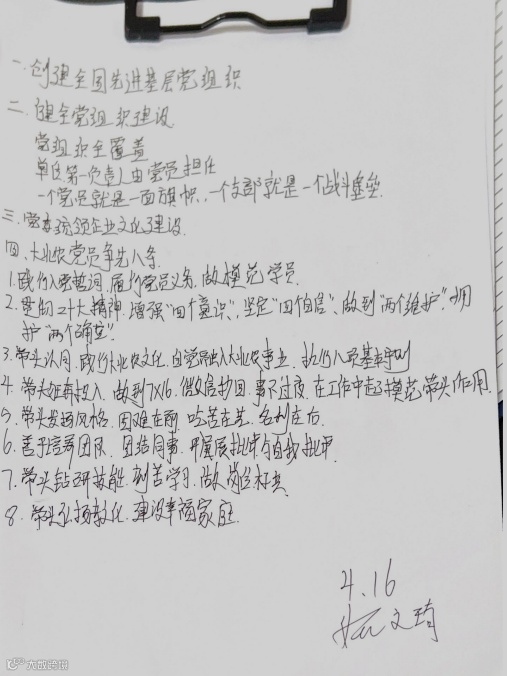 一.创建全国先进基层党组织
二.健全党组织建设
党组织全覆盖
单位第一负责人由党员担任
一个党员就是一面旗帜,一个支部就是一个战斗堡垒.
三.党委统领企业文化建设
四.大北农党员争先八条
1.践行入党誓词,履行党员义务,做模范党员
2.贯彻二十大精神,增强"四个意识",坚定"四个自信",做到"两个维护",拥
护"两个确立".
3.带头认同,践行大北农文化,自觉融入大北农事业,执行人员基本守则
4.带头准再投入,做到7×16,微信秒回,事不过夜,在工作中起模范带头作用
5.带头发扬风格,困难在前,吃苦在先,名利在后
6.善于培养团队,团结同事,开展批评与自我批评
7.带头钻研技能,刻苦学习,做岗位标兵
8.带头弘扬孝化,建设幸福家庭
4.16
文琦
大数跨境